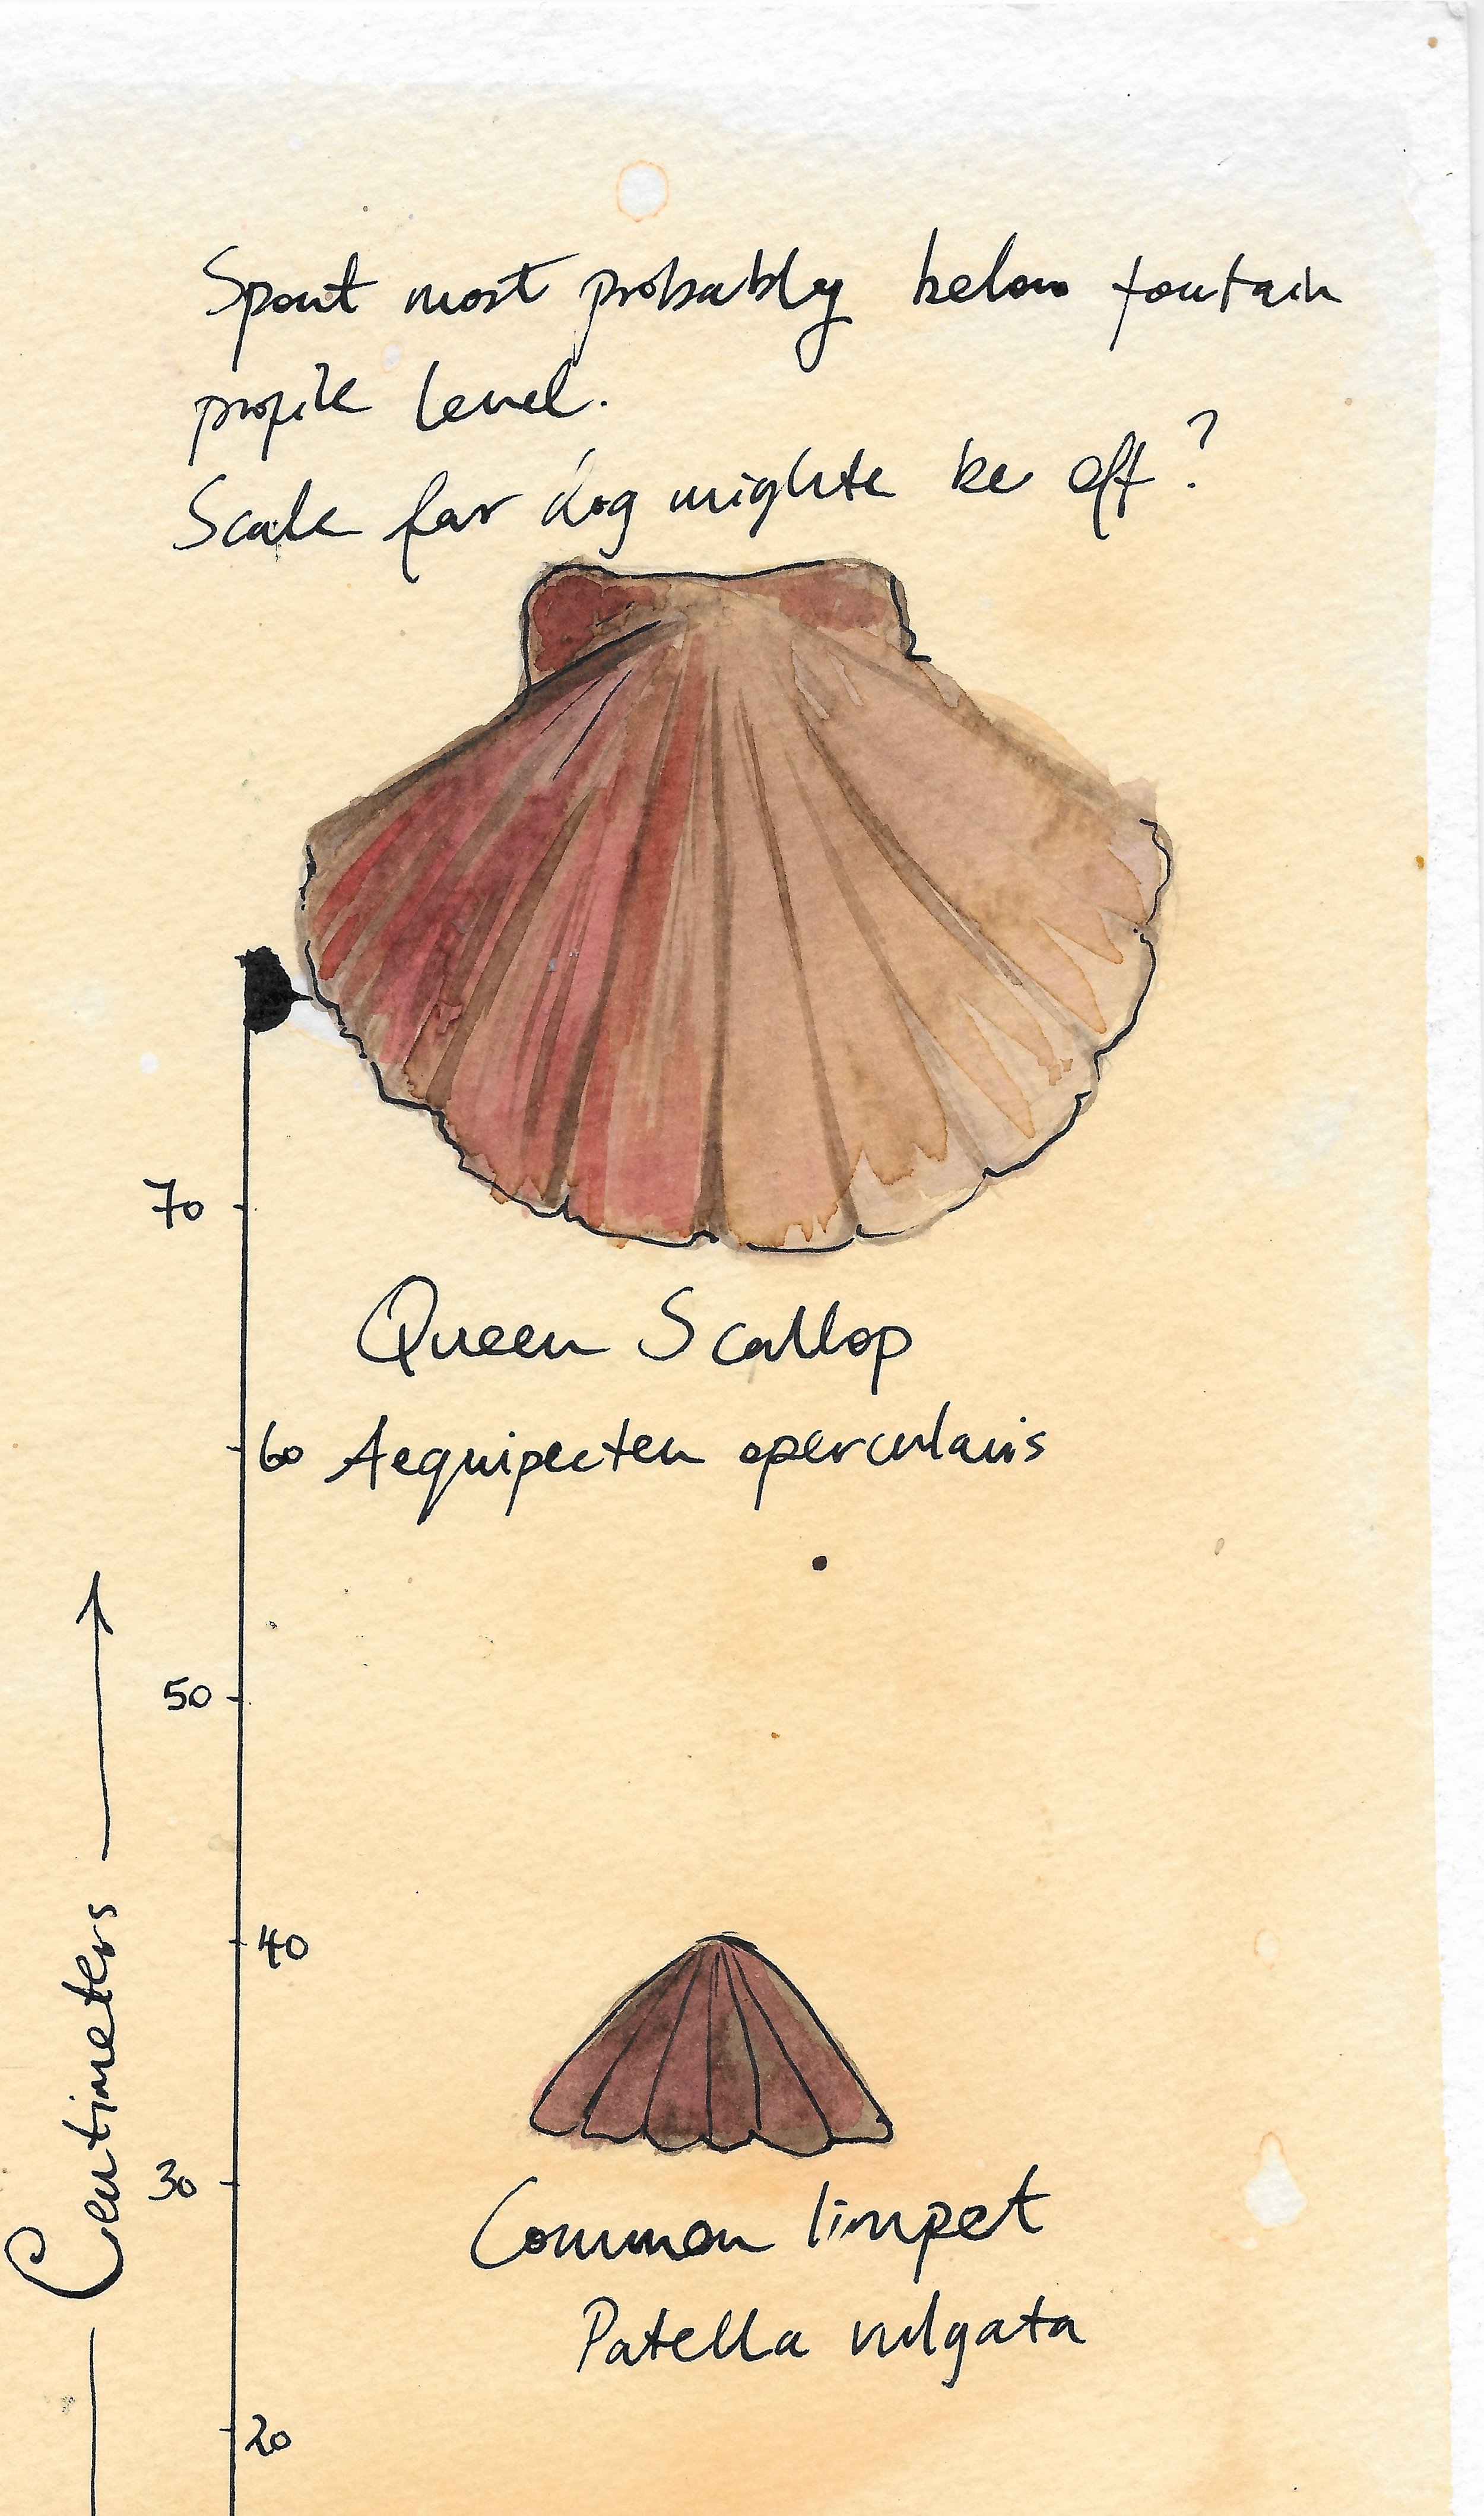 Spout most probably below foutain
profile level.
Scale for dog mighte be off?
70
Queen Scallop
60 Aequipecten opercularis
50
Centimeters
40
30
Common limpet
Patella vulgata
20